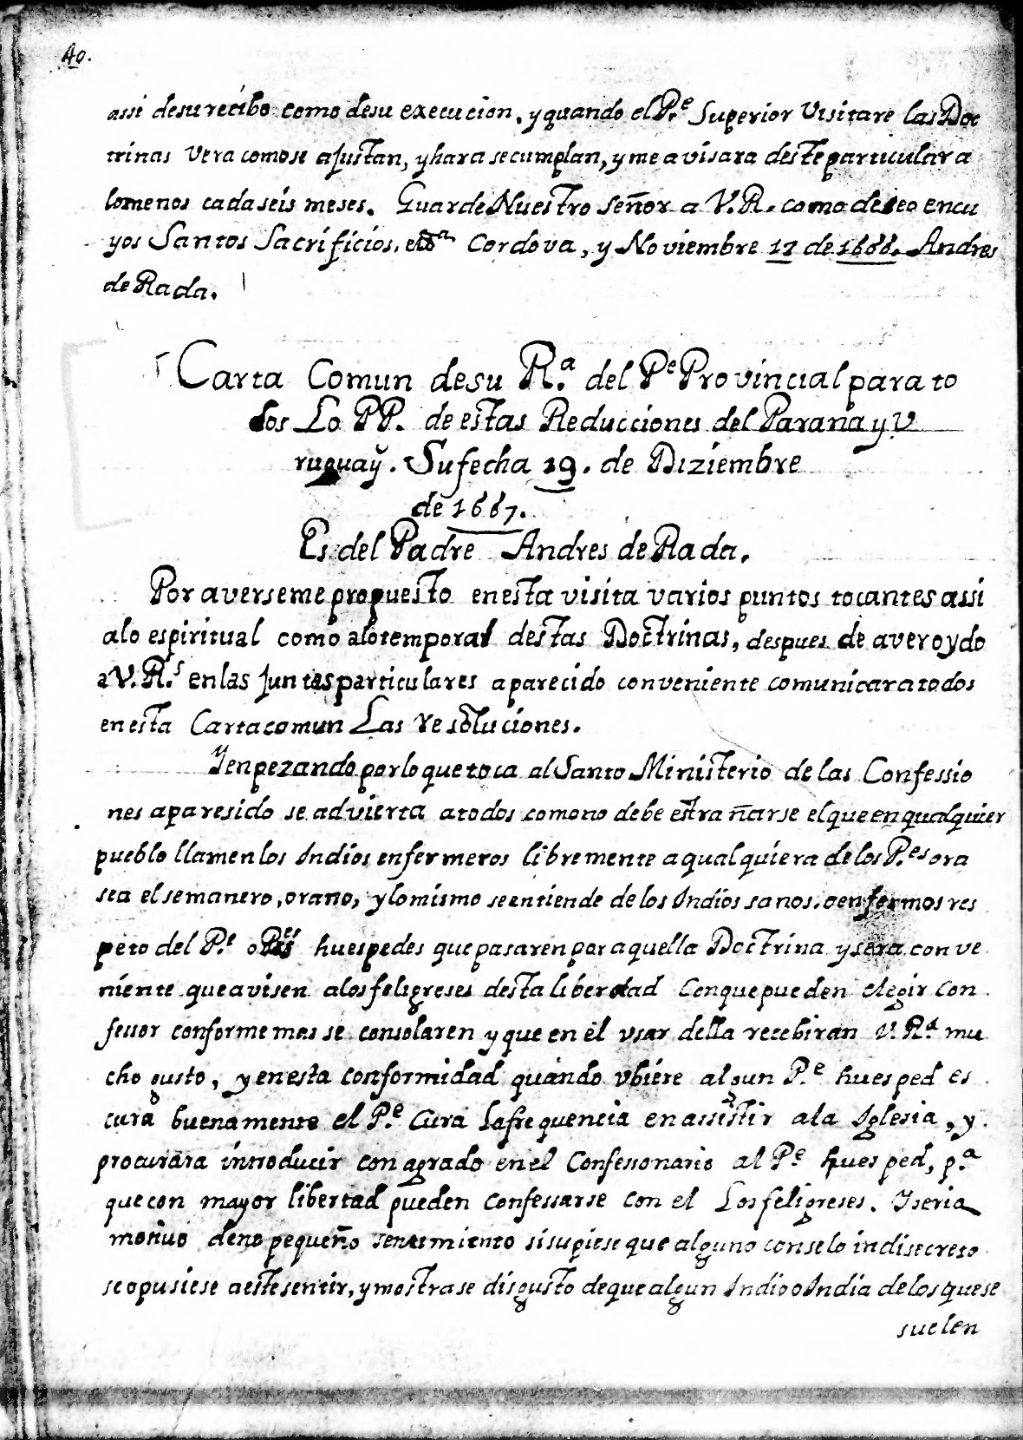 40.
assi desu recibo como desu execucion, y quando el P.e Superior Visitare las Doc
trinas Vera como se ajustan, y hara se cumplan, y me avisara deste particular a
lo menos cada seis meses. Guarde Nuestro Señor a V.R. como deseo encu
yos Santos Sacrificios, Cordova, y Noviembre 17 de 1666. Andres
de Rada.
Carta Comun desu R.a del P.e Provincial para to
dos Lo PP. de estas Reducciones del Parana y V
ruguaÿ. Su fecha 19. de Diziembre
de 1667.
Es del Padre Andres de Rada.
Por averseme propuesto en esta visita varios puntos tocantes assi
alo espiritual como alo temporal destas Doctrinas, despues de aver oydo
a V.R.s en las Juntas particulares a parecido conveniente comunicar a todos
en esta Carta comun Las resoluciones.
Y enpezando por lo que toca al Santo Ministerio de las Confessio
nes a paresido se advierta a todos como no debe estrañarse el que en qualquier
pueblo llamen los Indios enfermeros libremente a qualquiera de los P.es ora
sea el semanero, orano, y lo mismo se entiende de los Indios sanos. o enfermos res
peto del P.e o P.es huespedes que pasaren por aquella Doctrina y sera conve
niente que avisen a los feligreses desta libertad Con que pueden elegir Con
fessor conforme mas se consolaren y que en el vsar della recebiran V.R.a mu
cho gusto, y en esta conformidad quando vbiere algun P.e huesped es
cura buenamente el P.e Cura la frequencia en assistir a la Iglesia, y
procurara introducir con agrado en el Confessonario al P.e huesped, p.a
que con mayor libertad pueden confessarse con el Los feligreses. Y seria
motivo de no pequeño sentimiento si supiese que alguno con selo indisecreto
se opusiese a este sentir, y mostrase disgusto de que algun Indio o India de los que se
suelen